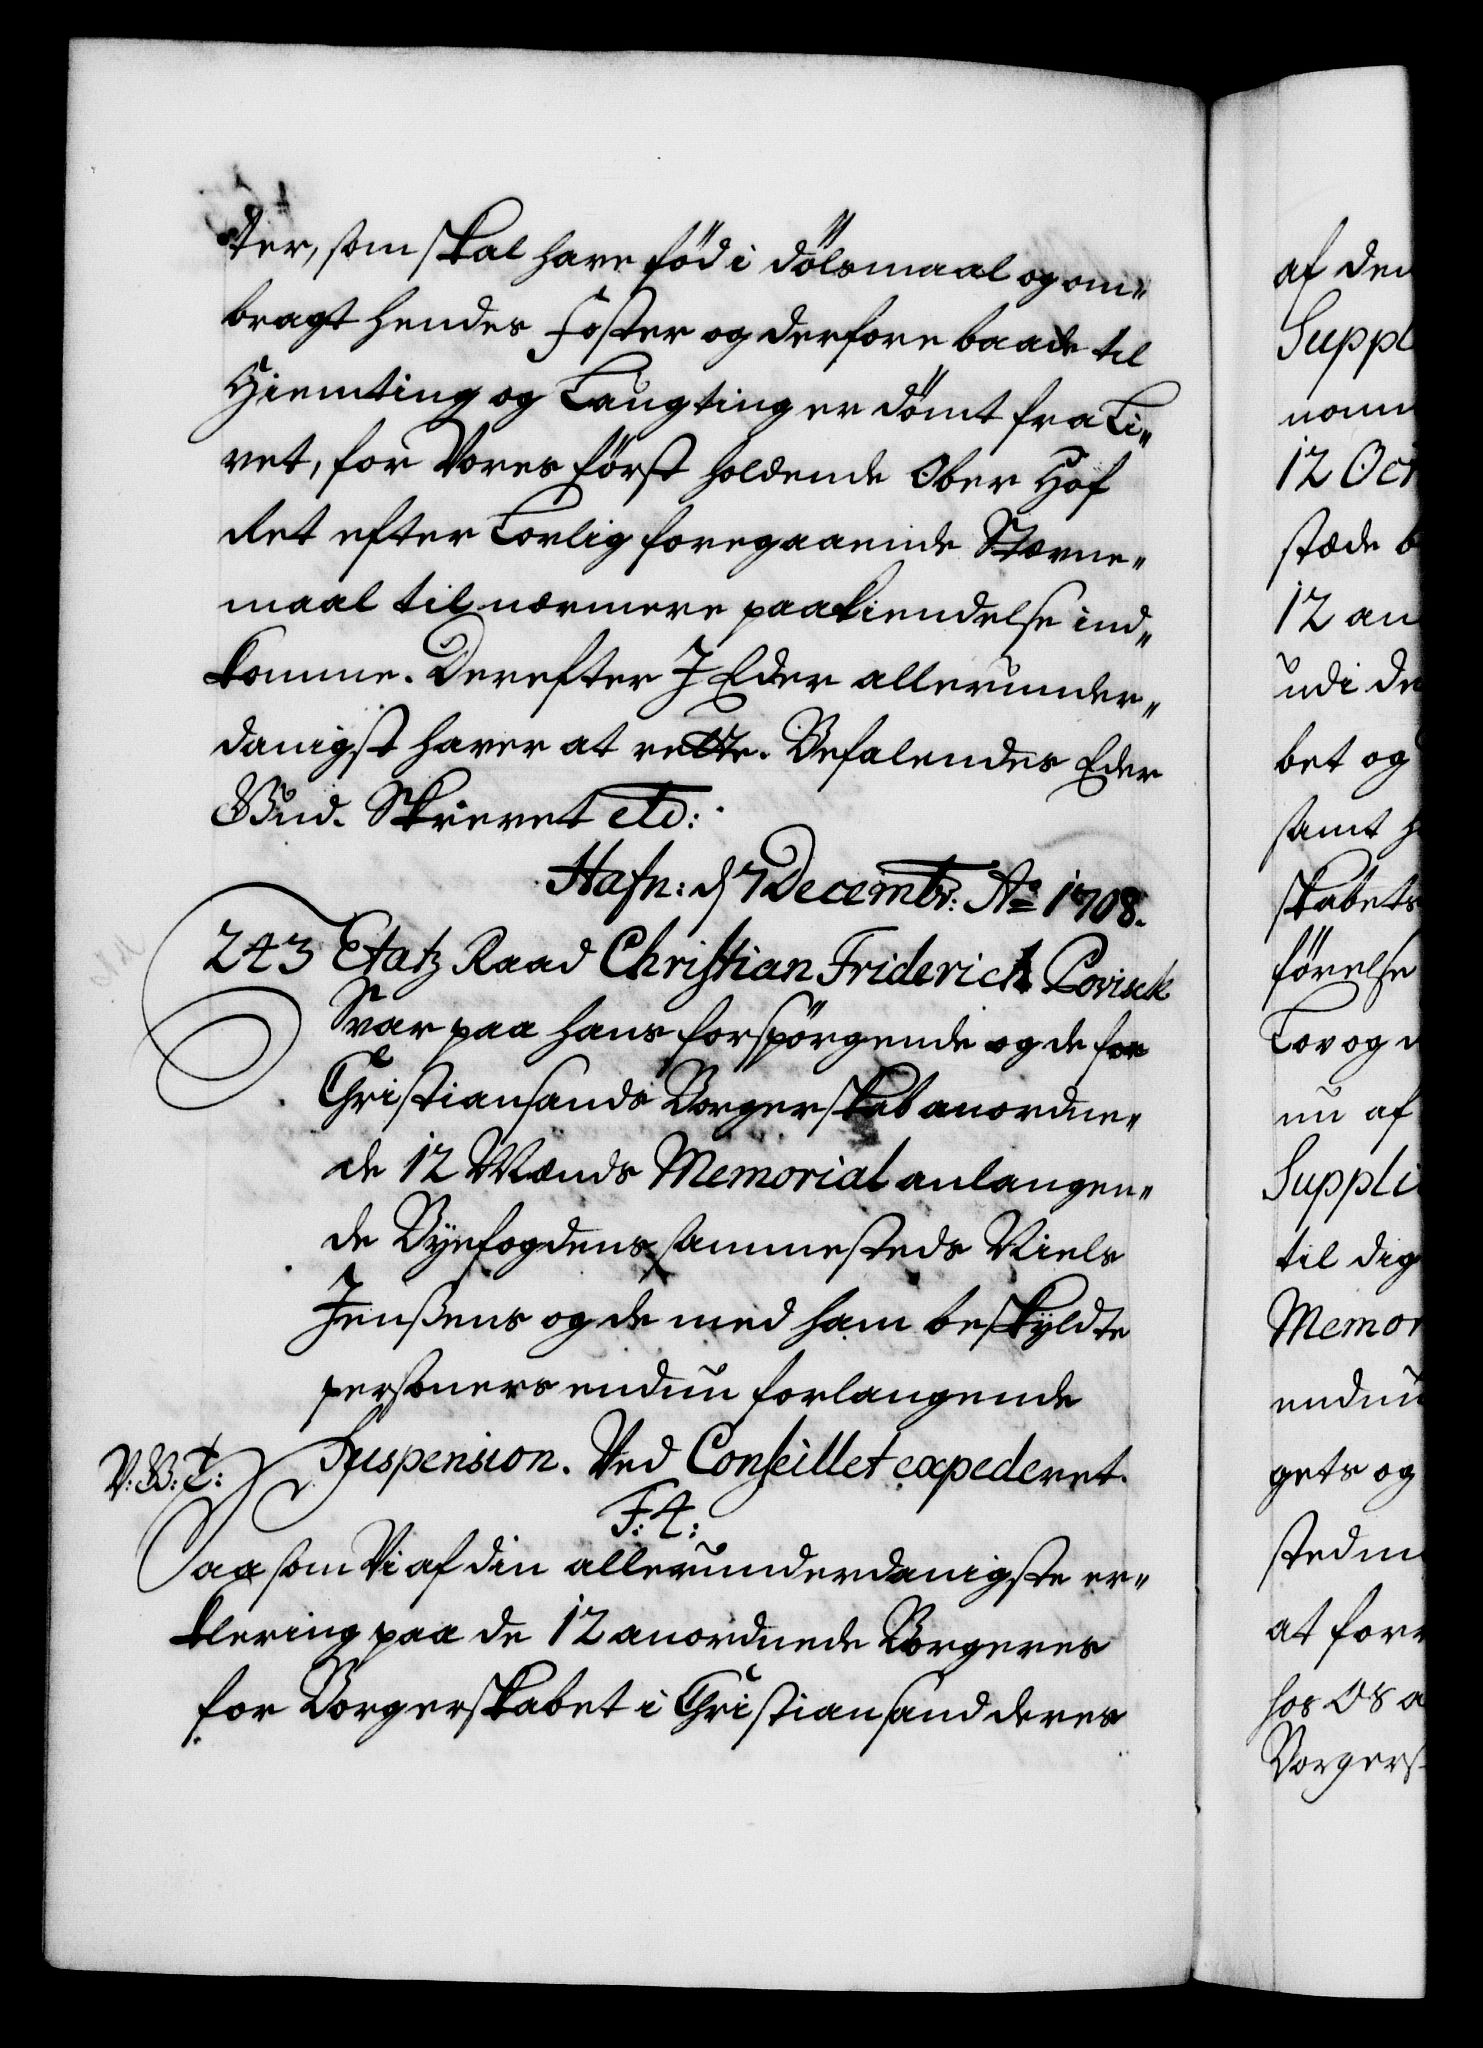 ter, som skal have föd i dölsmaal og om„
bragt hendes Foster og derfore baade til
Hiemting og Laugting er dömt fra Li„
vet, for Vores först holdende Ober Hof
Ret efter Lovlig foregaaende Stævne„
maal til nærmere paakiendelse ind„
komme. Derefter I Eder allerunder„
danigst haver at rette. Befalendes Eder
Gud. Skrevet etc:
Hafn: d 7 Decembr: Aо 1708.
243 Etatz Raad Christian Friderich Povisck
Svar paa hans forspörgende og de for
Christiansands Borgerskab anordne„
de 12 Mænds Memorial anlangen„
de Byefogdens sammesteds Niels
Jenßens og de med ham beskyldte
personers endnu forlangende
V: G: T: Suspension. Ved Conseillet expederet.
F: 4:
Saasom Vi af din allerunderdanigste er„
klering paa de 12 anordnede Borgeres
for Borgerskabet i Christiansand deres
af den
Suppl
nom
12 Oct
stæde b
12 an
udi de
bet og
samt h
skabets
förelse
Lov og
nu af
Suppli
til dig
Memor
endnu
gets og
sted m
at for
hos OS a
Borgers